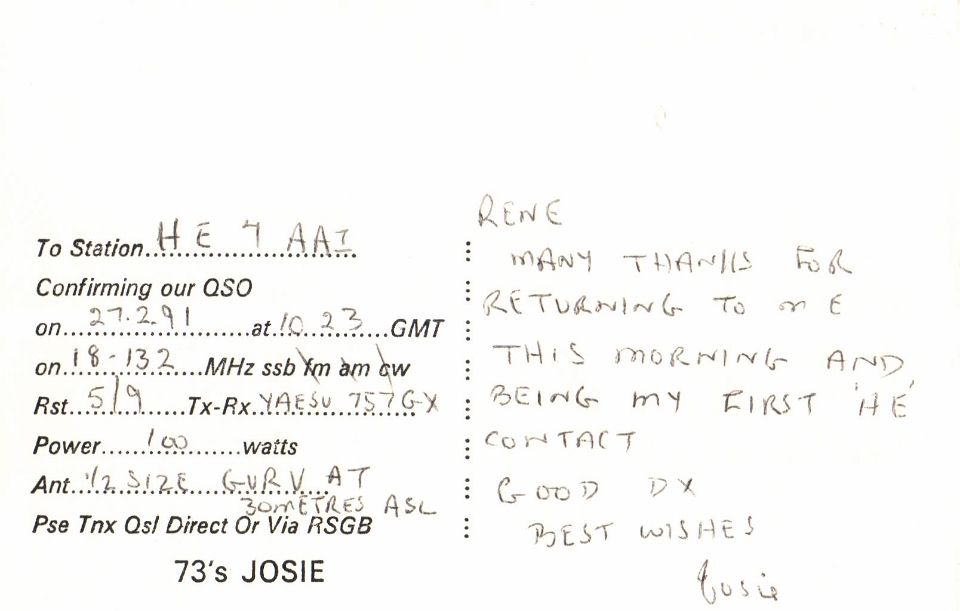 To Station HE 7 AAI
Confirming our QSO
on 27.2.91 at 10.23 GMT
on 18-132 MHz ssb fm am cw
Rst 5/9 Tx-Rx YAESU 757GX
Power 100 watts
Ant 1/2 SIZE G4RV AT
30METRES ASL
Pse Tnx Qsl Direct Or Via RSGB
73's JOSIE
RENE
MANY THANKS FOR
RETURNING TO ME
THIS MORNING AND
BEING MY FIRST 'HE'
CONTACT
GOOD DX
BEST WISHES
Josie